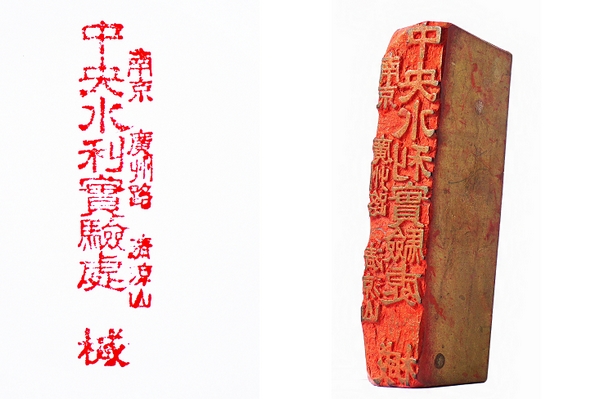 南京 廣州路 清凉山
中央水利實驗處 椷
中央水利實驗處 椷
南京 廣州路 清凉山